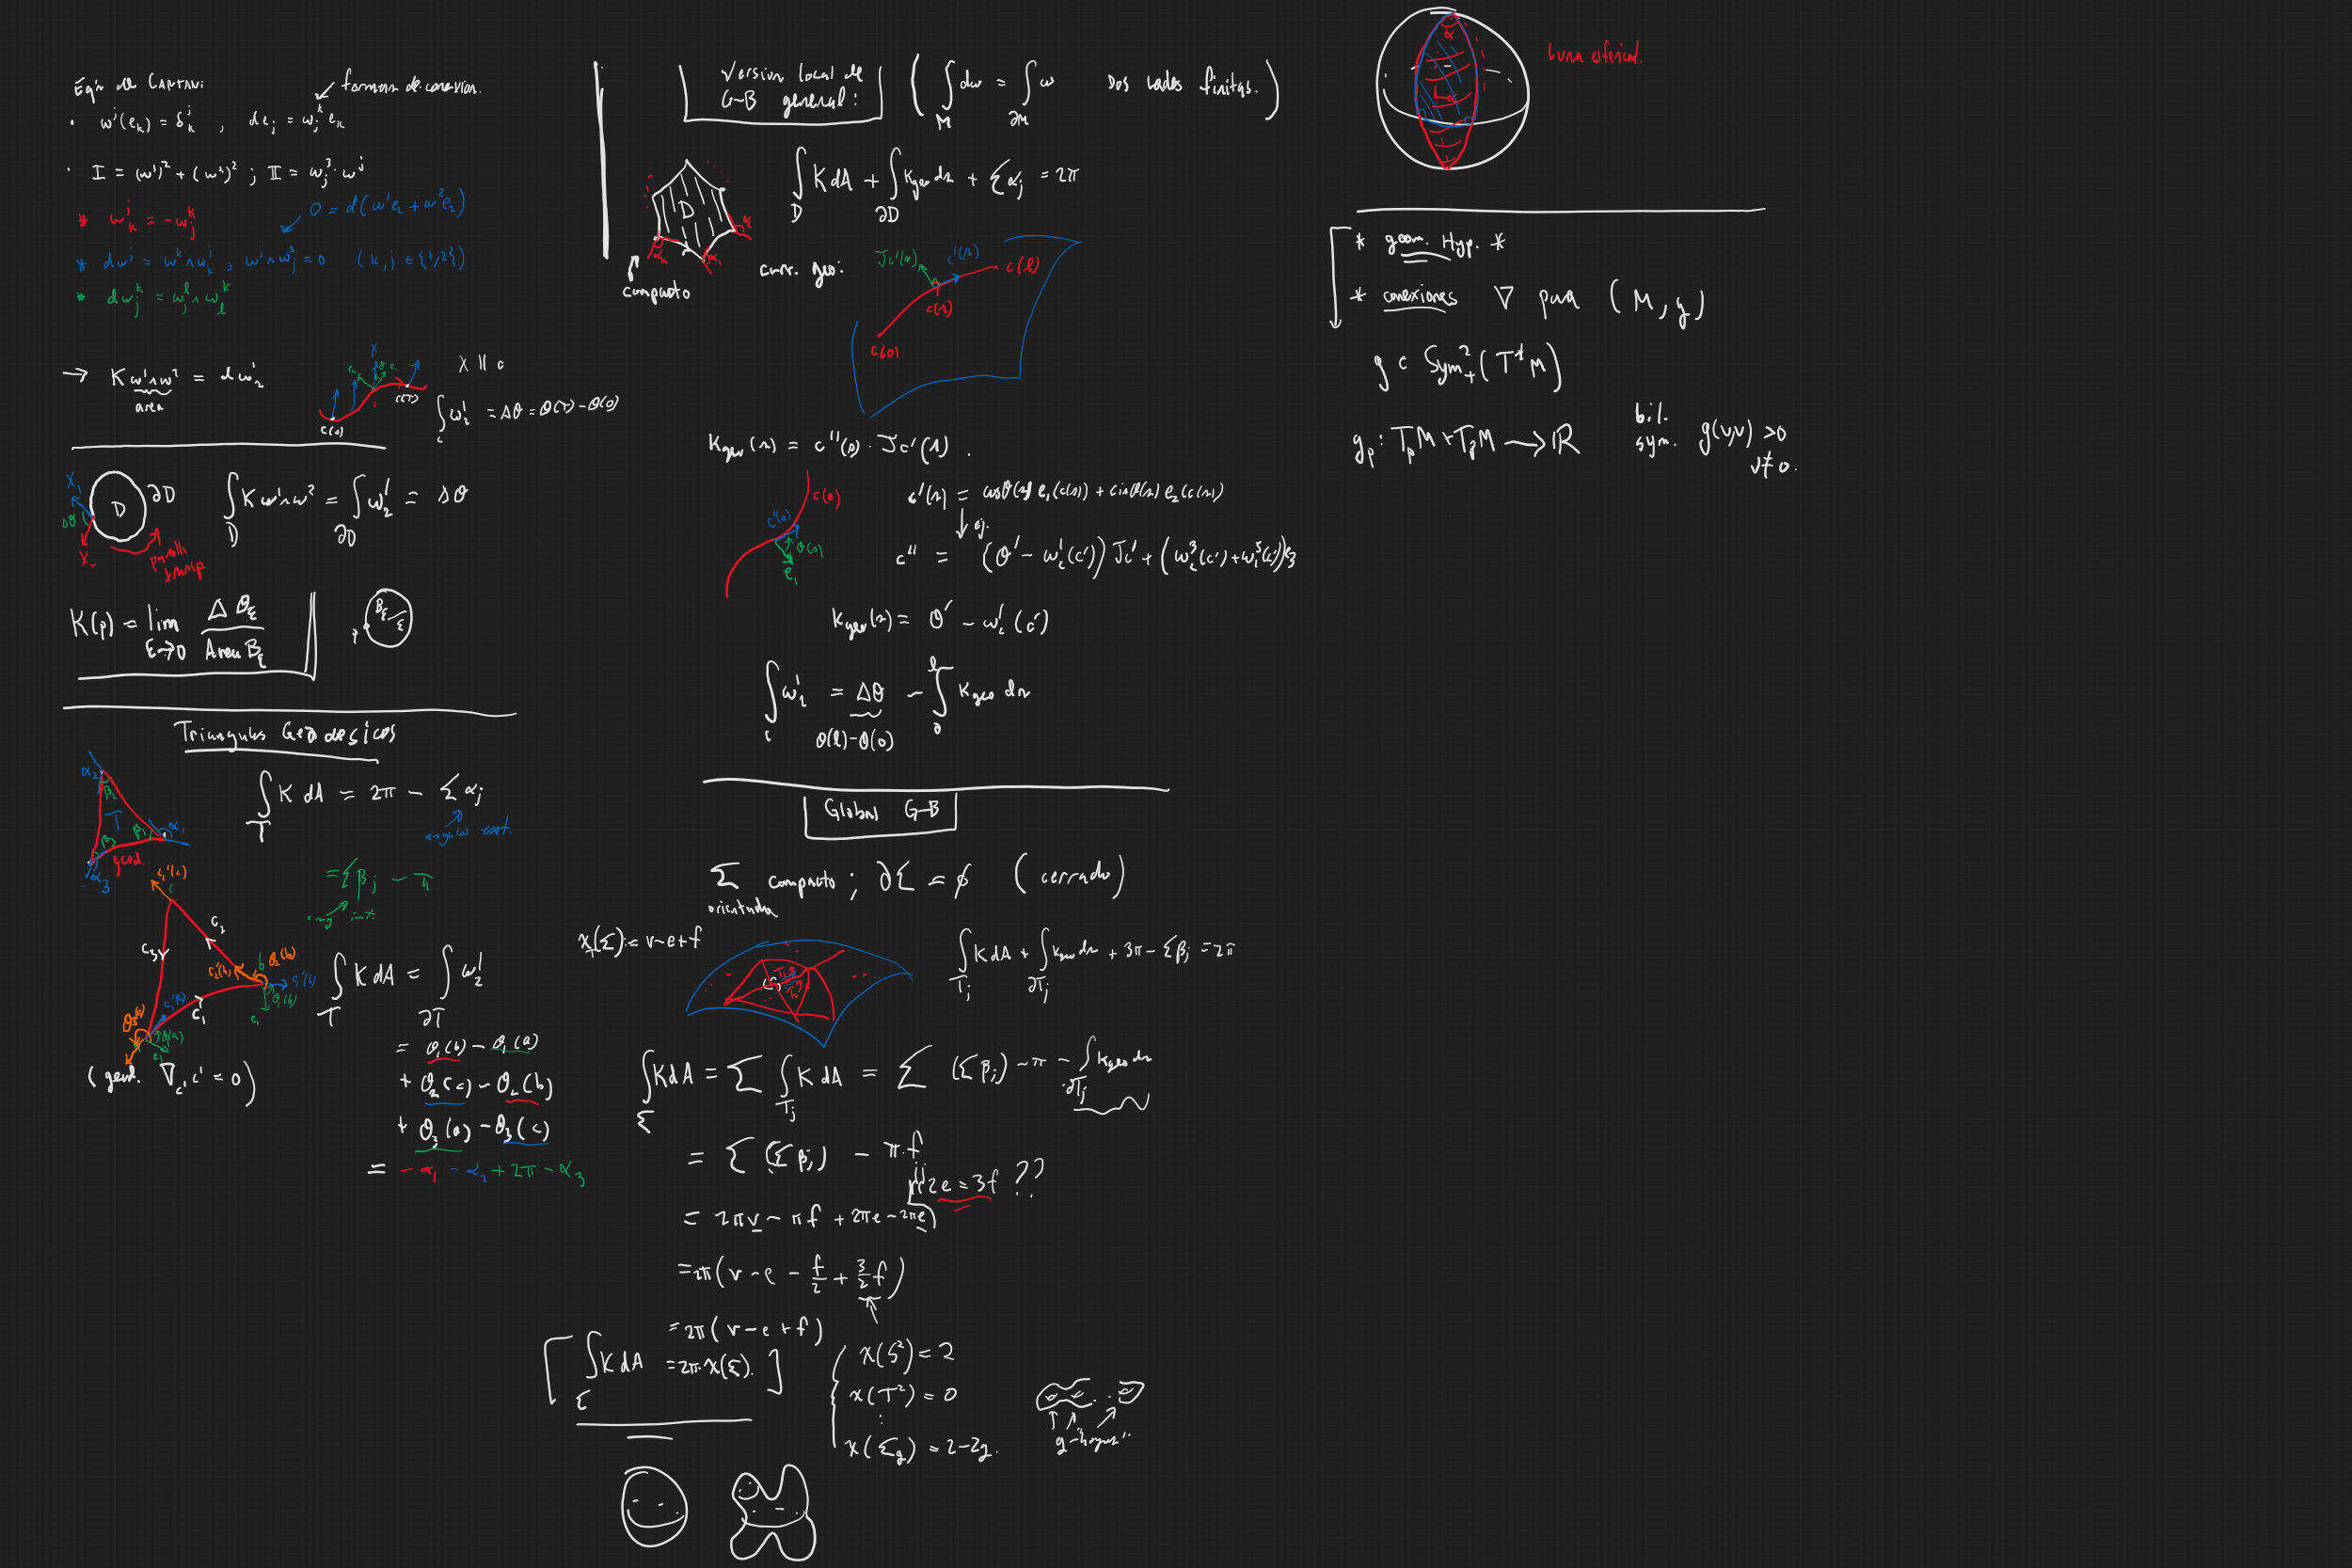 Eqn de CARTAN:
formas de conexion.
• ω^j(e_k) = δ^j_k , de_j = ω_j^k e_k
• I = (ω^1)^2 + (ω^2)^2 ; II = ω_j^3 · ω^j
* ω_k^j = -ω_j^k
0 = d(ω^1e_1 + ω^2e_2)
* dω^j = ω^k∧ω_k^j , ω^j∧ω_j^3 = 0 (k,j ∈ {1,2})
* dω_j^k = ω_j^l∧ω_l^k
→ K ω^1∧ω^2 = dω_2^1
area
X
c(0)
c(T)
X || c
∫_c ω_2^1 = Δθ = θ(T) - θ(0)
X_1
Δθ
X_0
D
∂D
∫_D K ω^1∧ω^2 = ∫_∂D ω_2^1 = Δθ
K(p) = lim_{ε→0} Δθ_ε / Area B_ε
p
B_ε
ε
Triangulos Geodesicos
α_2
β_2
T
β_1
α_1
β_3
geod.
α_3
∫_T K dA = 2π - Σα_j
= Σβ_j - π
c_2'(c)
c
c_2
c_3
c_2'(b)
b
θ_2(b)
c_1'(b)
θ_1(b)
e_1
c_1'(a)
c_1
θ_3(a)
θ_1(a)
e_1
∫_T K dA = ∫_∂T ω_2^1
= θ_1(b) - θ_1(a)
+ θ_2(c) - θ_2(b)
+ θ_3(a) - θ_3(c)
= -α_1 - α_2 + 2π - α_3
(geod. ∇_{c'} c' = 0)
Version local de
G-B general:
( ∫_M dω = ∫_∂M ω Dos lados finitas. )
D
α_n
α_1
α_2
compacto
∫_D K dA + ∫_∂D K_geo ds + Σα_j = 2π
curv. geo:
Jc'(s)
c'(s)
c(l)
c(s)
c(0)
K_geo(s) = c''(s) · Jc'(s) .
c(s)
c'(s)
θ(s)
e_1
c'(s) = cosθ(s) e_1(c(s)) + sinθ(s) e_2(c(s))
↓ ej.
c'' = (θ' - ω_2^1(c')) Jc' + (ω_2^3(c') + ω_1^3(c'))e_3
K_geo(s) = θ' - ω_2^1(c')
∫_c ω_2^1 = Δθ - ∫_0^l K_geo ds
θ(l) - θ(0)
Global G-B
Σ compacto ; ∂Σ = ∅ (cerrado)
orientada
χ(Σ) := v-e+f
∫_{T_j} K dA + ∫_{∂T_j} K_geo ds + 3π - Σβ_j = 2π
∫_Σ K dA = Σ ∫_{T_j} K dA = Σ (Σβ_j) - π - ∫_{∂T_j} K_geo ds
= Σ (Σβ_j) - π·f
2e = 3f ??
= 2πv - πf + 2πe - 2πe
= 2π(v - e - f/2 + 3/2 f)
= 2π(v - e + f)
∫_Σ K dA = 2π·χ(Σ).
χ(S^2) = 2
χ(T^2) = 0
⋮
χ(Σ_g) = 2-2g.
α
L_α
Luna esferical.
* geom. Hyp. *
* conexiones ∇ para (M, g)
g ∈ Sym^2_+(T*M)
g_p : T_pM × T_pM → ℝ
bil.
sym. g(v,v) > 0
v ≠ 0.